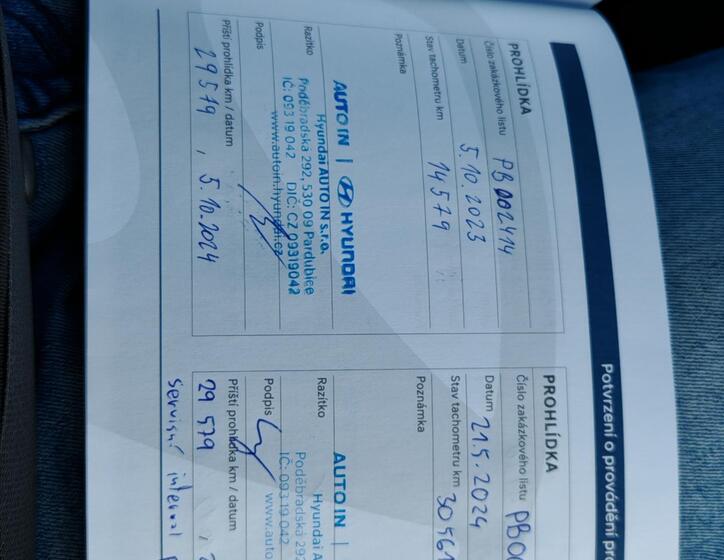 Potvrzení o provádění pro
PROHLÍDKA
Číslo zakázkového listu PB002414
Datum 5.10.2023
Stav tachometru km 14579
Poznámka
AUTO IN | HYUNDAI
Hyundai AUTO IN s.r.o.
Razítko Poděbradská 292, 530 09 Pardubice
IČ: 093 19 042 DIČ: CZ 09319042
www.autoin.hyundai.cz
Podpis
Příští prohlídka km / datum
29579 , 5.10.2024
PROHLÍDKA
Číslo zakázkového listu PB0
Datum 21.5.2024
Stav tachometru km 30561
Poznámka
AUTO IN |
Hyundai A
Razítko Poděbradská 29
IČ: 093 19 042
www.auto
Podpis
Příští prohlídka km / datum
29 579
servisní interval